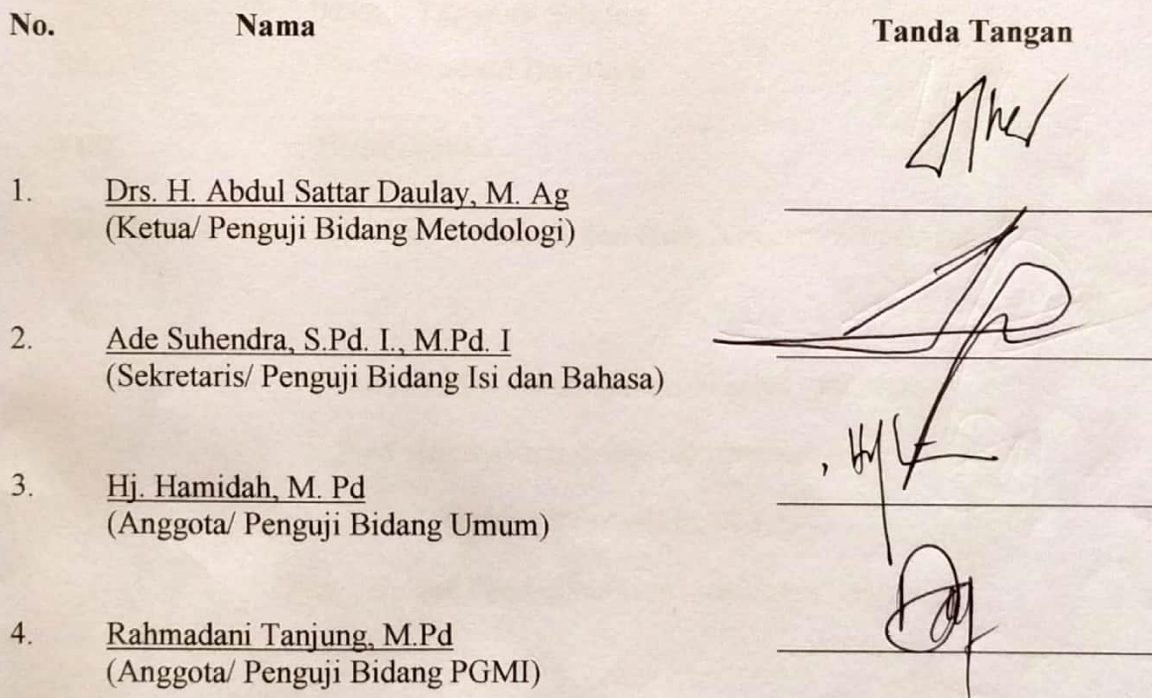 No. Nama Tanda Tangan
1. Drs. H. Abdul Sattar Daulay, M. Ag
(Ketua/ Penguji Bidang Metodologi)
2. Ade Suhendra, S.Pd. I., M.Pd. I
(Sekretaris/ Penguji Bidang Isi dan Bahasa)
3. Hj. Hamidah, M. Pd
(Anggota/ Penguji Bidang Umum)
4. Rahmadani Tanjung, M.Pd
(Anggota/ Penguji Bidang PGMI)